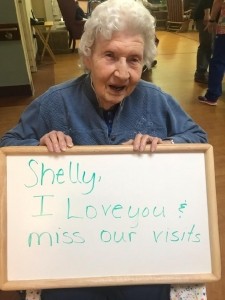 Shelly,
I Love you &
miss our visits